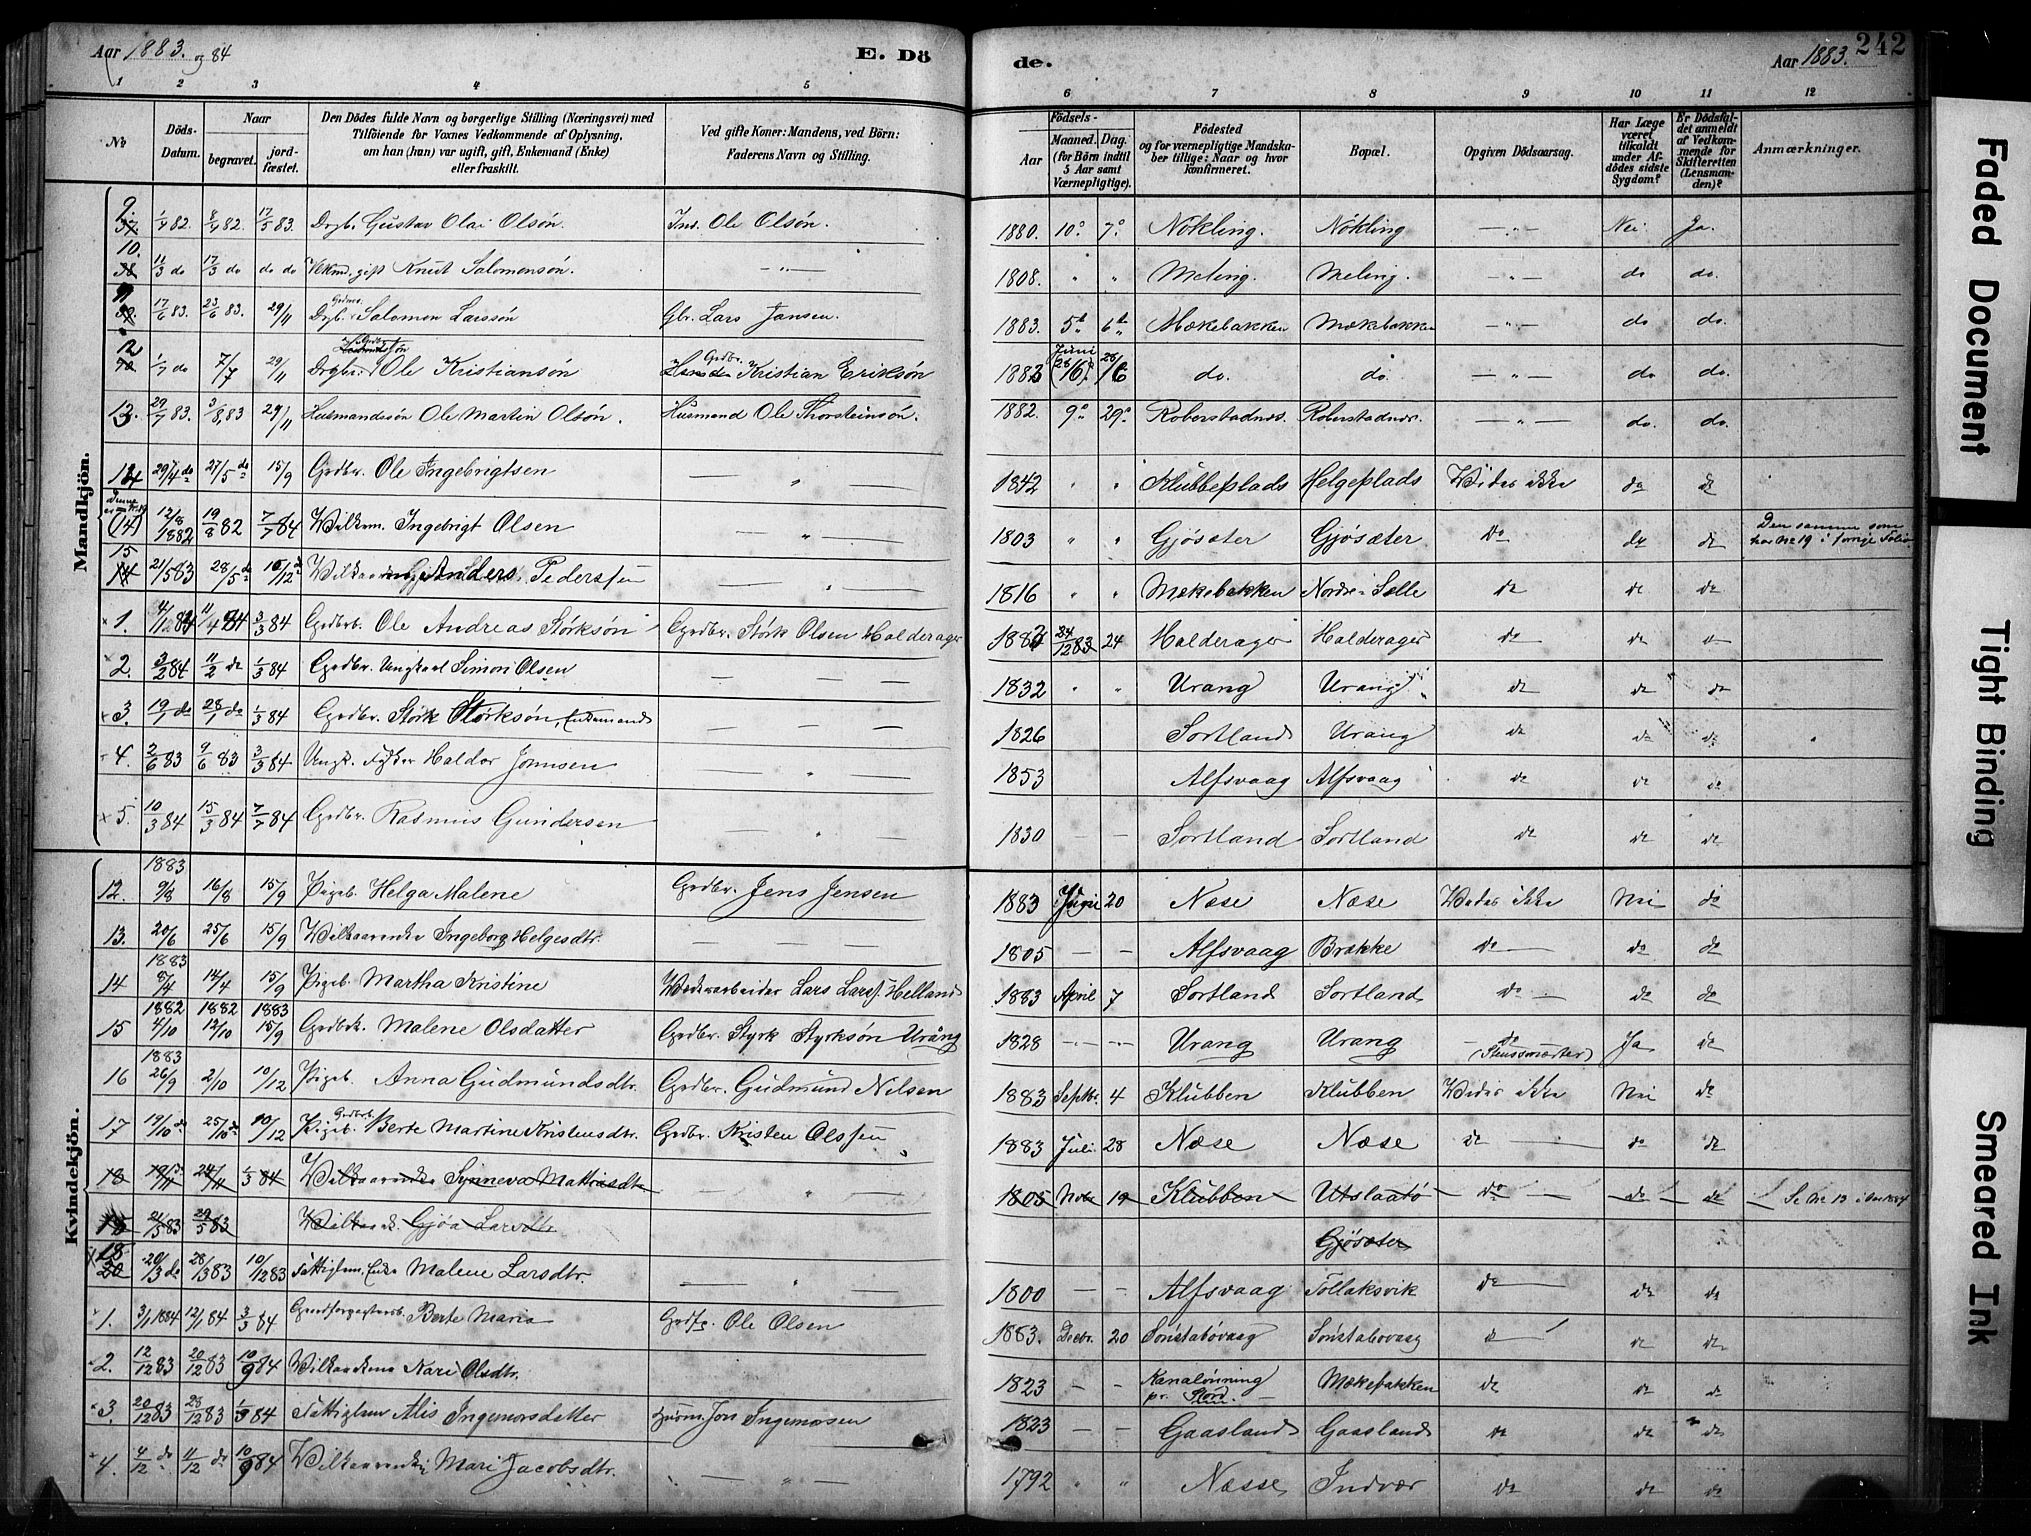 Aar 1883. og 84
E. Dö
de.
Aar 1883.
242
1 2 3 4 5 6 7 8 9 10 11 12
No
Döds-Datum.
Naar
begravet.
jordfæstet.
Den Dödes fulde Navn og borgerlige Stilling (Næringsvei) med
Tilföiende for Voxnes Vedkommende af Oplysning,
om han (hun) var ugift, gift, Enkemand (Enke)
eller fraskilt.
Ved gifte Koner: Mandens, ved Börn:
Faderens Navn og Stilling.
Födsels-
Aar
Maaned. Dag.
(for Börn indtil
5 Aar samt
Værnepligtige).
Födested
og for værnepligtige Mandska-
ber tillige: Naar og hvor
konfirmeret.
Bopæl.
Opgiven Dödsaarsag.
Har Læge
været
tilkaldt
under Af-
dödes sidste
Sygdom?
Er Dödsfal-
det anmeldt
af Vedkom-
mende for
Skifteretten
(Lensman-
den)?
Anmærkninger.
Mandkjön.
9. 1/4 82. 8/4 82. 17/5 83. Drgb. Gustav Olai Olsøn. Ins. Ole Olsøn. 1880. 10. 7. Nökling. Nökling. — " — Nei Ja.
10. 11/3 do 17/3 do do do gift Knut Salomonsøn. — " — 1808. " " Meling. Meling. — " — do do.
17/6 83. 23/6 83. 29/11 Drgb. Salomon Larssøn Gbr. Lars Jansen. 1883. 5 6 Mækebakken Mækebakken — " — do do.
12 1/7 do 7/7 29/11 Drgbr. Ole Kristiansøn Grdbr. Kristian Eriksøn 1883 Juni 28/6 do. do. — " — do do.
13. 29/7 83. 3/8 83 29/11 Husmandssøn Ole Martin Olsøn. Husmand Ole Thorsteinsøn. 1882. 9 29 Roberstadnes. Roberstadnes. — " — do. do.
14 29/4 do 27/5 do 15/9 Grdbr. Ole Ingebrigtsen — " — 1842 " " Klubbeplads Helgeplads Wides ikke do do
(14) 12/8 1882 19/8 82 7/7 84 Wilkm. Ingebrigt Olsen — " — 1803 " " Gjøsæter Gjøsæter Do do do Den samme som har No 19 i forrige Folio
15 21/5 83 28/5 do 10/12 do Anders Pederssen — " — 1816 " " Mækebakken Nordre Sælle do do do
1. 11/4 84 3/3 84 Grdbrb. Ole Andreas Størksøn Grdbr. Størk Olsen Halderager 24/12 83 24 Halderager Halderager do do
2. 3/2 84 11/2 do 1/3 84 Grdbr. Ungkarl Simon Olsen — — 1832 " " Urang Urang do do do
3. 19/1 do 28/1 do 1/3 84 Grdbr. Størk Størksøn, Enkemand — — 1826 Sortland Urang do do do
4. 2/6 83 9/6 83 3/3 84 Ungk. Haldor Jonnsen — " — 1853 Alfsvaag Alfsvaag do do do
5. 10/3 84 15/3 84 7/7 84 Grdbr. Rasmus Gundersen — " — 1830 — — Sortland Sortland do do do
Kvindekjön.
12. 1883 9/8 16/8 15/9 Pigeb. Helga Malene Grdbr. Jens Jensen 1883 20 Næse Næse Wides ikke Nei do
13. 20/6 25/6 15/9 Wilkaarenke Ingeborg Helgesdtr. — — — 1805 — — Alfsvaag Brække do — do do
14 1883 8/4 14/4 15/9 Pigeb. Martha Kristine Lars Larss. Helland 1883 April 7 Sortland Sortland do — do do
15 1882 4/10 1882 12/10 1883 15/9 Grdbrk. Malene Olsdatter Grdbr. Styrk Styrksøn Urång 1828 — — Urang Urang do Ja do
16 1883 26/9 2/10 10/12 Pigeb. Anna Gudmundsdtr. Grdbr. Gudmund Nilsen 1883 Septbr. 4 Klubben Klubben Wides ikke Nei do
17 19/10 do 25/10 do 10/12 Pigeb. Grdbrb. Berte Martine Kristensdtr. Grdbr. Kristen Olssen 1883 Juli 28 Næse Næse do — do do
18 19/11 24/11 1/3 84 Wilkaarenke Synneva Mattiasdtr — " — 1805 Novbr 19 Klubben Utslaatø do — do — do Se No 13 i
21/5 83 29/5 83 Gjøa Larsdtr Gjøsæter
18 20 20/3 do 28/3 83 10/12 83 Fattiglem, Enke Malene Larsdtr. — " — 1800 — — Alfsvaag Tollaksvik do — do do
1. 3/1 1884 12/1 84 3/3 84 Berte Maria Ole Olsen 1883. Decbr. 20 Sønstabøvaag Sønstabovaag do do do
2. 12/12 83 20/12 83 10/9 84 Nari Olsdtr. 1823 — — Kanalønning pr. Stord. Mækebakken do do do
3. 20/12 83 28/12 83 84 Fattiglem Alis Ingemorsdatter Husm. Jon Ingemorsen 1823 — — Gaasland Gaasland do do do
4. 4/12 do 11/12 do 10/9 84 Wilkaarenke Mari Jacobsdtr. — " — 1792 " " Næsse Indvær do do do
Faded Document
Tight Binding
Smeared Ink